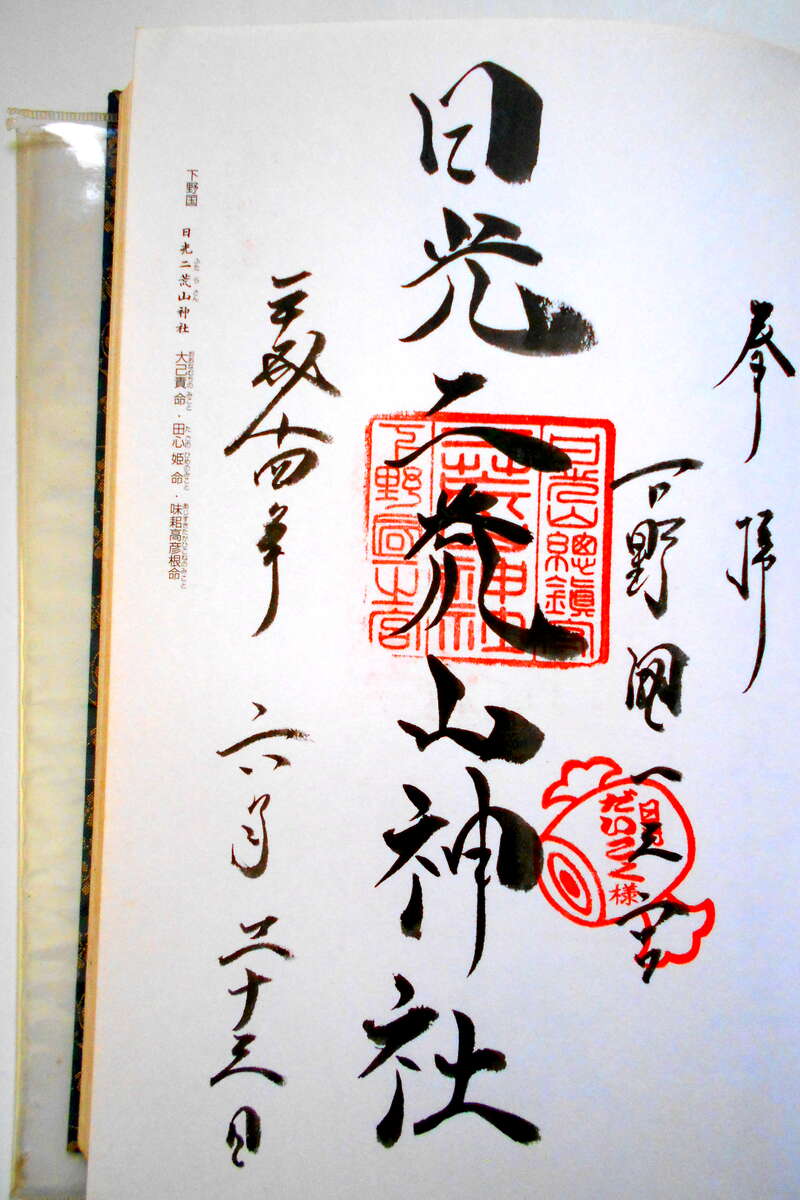 奉拝
下野國一之宮
日光だいこく様
日光二荒山神社
日光山總鎮守
二荒山神社
下野國一之宮
平成十四年 六月二十三日
下野国 日光二荒山神社 大己貴命・田心姫命・味耜高彦根命